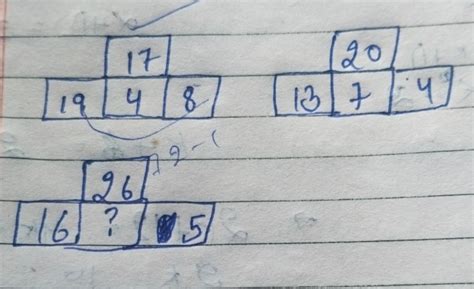 17
19 4 8
20
13 7 4
26
16 ? 5